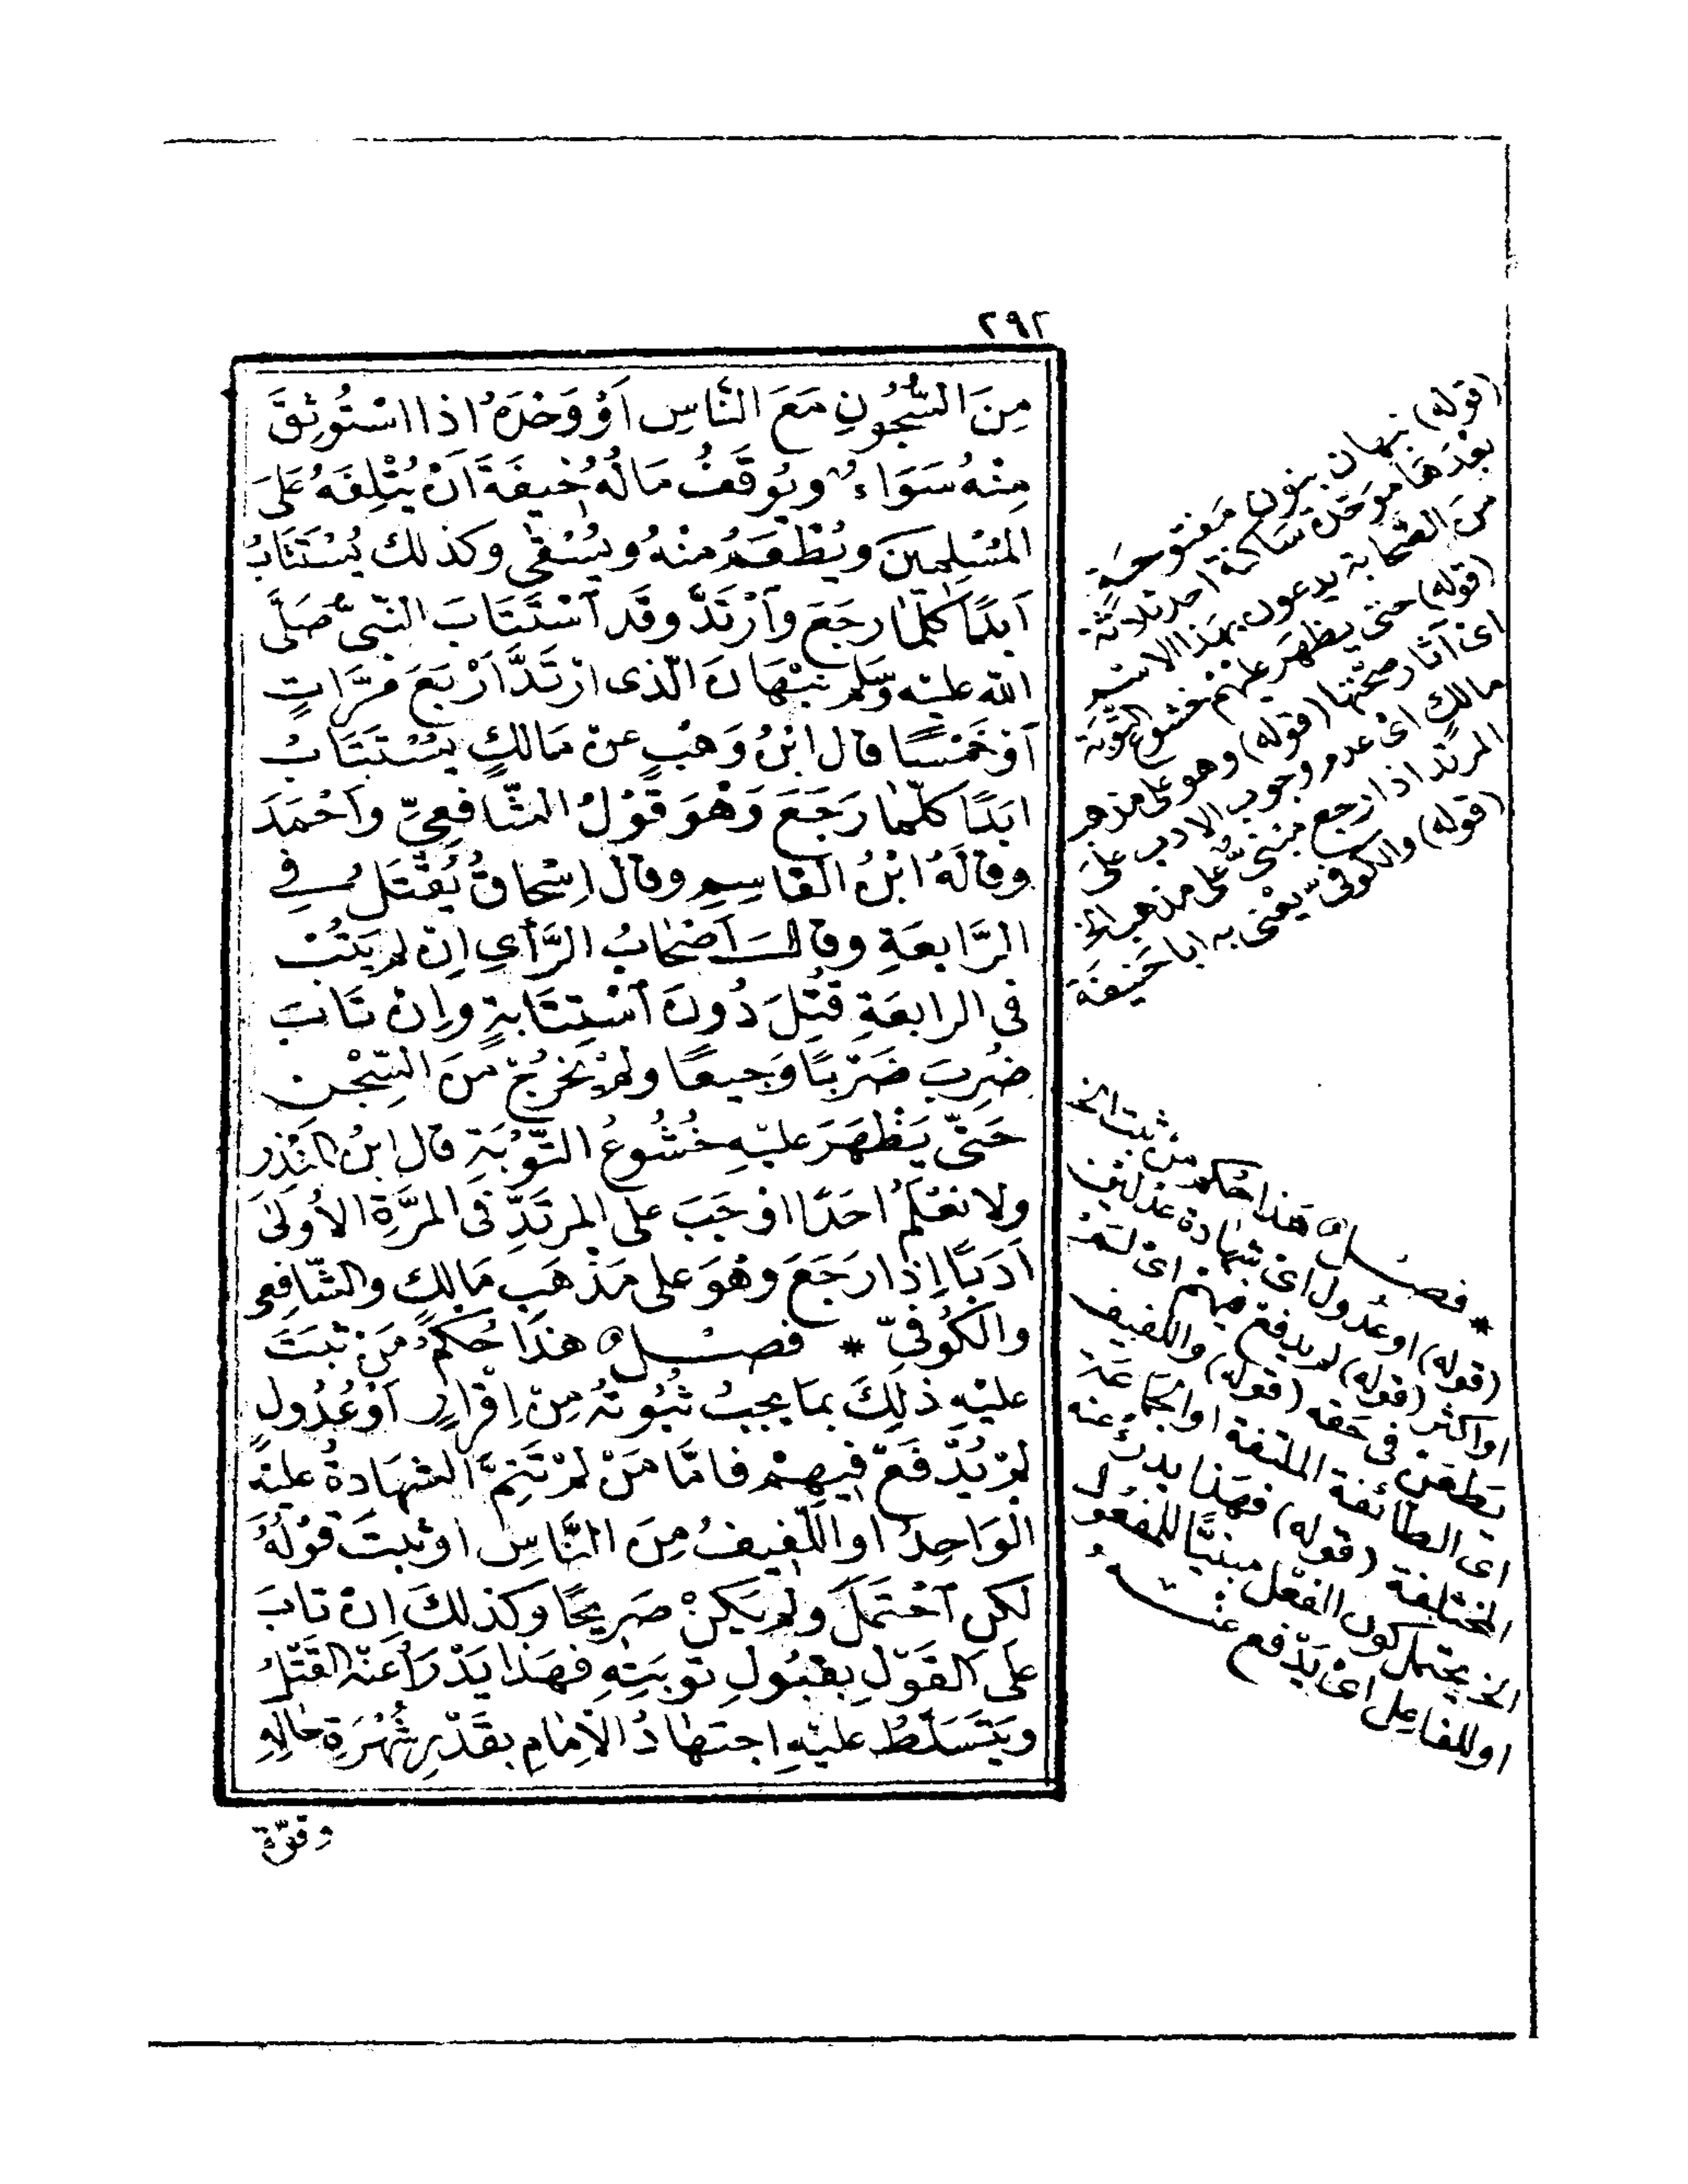 ٢٩٢
مِنَ السُّجُونِ مَعَ النَّاسِ اَوْ وَحْدَهُ اِذَا اسْتُوثِقَ
مِنْهُ سَوَاءٌ وَيُوقَفُ مَالُهُ خِيفَةَ اَنْ يُتْلِفَهُ عَلَى
المُسْلِمِينَ وَيُطْعَمُ مِنْهُ وَيُسْقٰى وكذلك يُسْتَتَابُ
اَبَدًا كُلَّمَا رَجَعَ وَارْتَدَّ وقد اسْتَتَابَ النَّبِيُّ صَلَّى
الله عليْه وَسَلم نَبْهَانَ الَّذى ارْتَدَّ اَرْبَعَ مَرَّاتٍ
اَوْ خَمْسًا قال ابْنُ وَهْبٍ عن مَالِكٍ يُسْتَتَابُ
ابَدًا كلّما رَجَعَ وَهُوَ قَوْلُ الشَّافِعِيِّ وَاَحْمَدَ
وقالَهُ ابْنُ القَاسِمِ وقال اِسْحاقُ يُقْتَلُ فِي
الرَّابِعَةِ وقالَ اَصْحَابُ الرَّأْيِ اِنْ لم يَتُبْ
فى الرابعَةِ قُتِلَ دُونَ اسْتِتَابَةٍ وَاِنْ تَابَ
ضُرِبَ ضَرْبًا وَجِيعًا ولَمْ يَخْرُجْ مِنَ السِّجْنِ
حَتّى يَظْهَرَ عليْهِ خُشُوعُ التَّوْبَةِ قال ابنُ المُنْذِر
ولا نعْلَمُ احَدًا اوْجَبَ على المرتَدِّ فى المَرَّةِ الاُولىٰ
اَدَبًا اِذا رَجَعَ وهُوَ على مَذْهَبِ مَالِكٍ والشّافِعى
والكُوفِيِّ * فصــل هٰذَا حُكْمُ مَنْ ثَبَتَ
عليْهِ ذٰلِكَ بمَا يجبُ ثُبُوتُهُ مِنْ اِقْرارٍ اَوْ عُدُولٍ
لَمْ يُدْفَعْ فِيهِمْ فامَّا مَنْ لَمْ تَتِمَّ الشهَادةُ عليْهِ
الْوَاحِدُ او اللَّفِيفُ مِنَ النَّاسِ اوْ ثبتَ قوْلُهُ
لكِنِ احْتَمَلَ ولَمْ يَكُنْ صَرِيحًا وَكذلكَ اِنْ تابَ
عَلَى القَوْلِ بقبُولِ توبَتِهِ فهٰذا يَدْرَأُ عَنْهُ القَتْلَ
ويَتَسَلَّطُ عليْهِ اجتهادُ الْاِمَامِ بقَدْرِ شُهْرَةِ حالِهِ
وقوّة
(قوله) نبهان بنون مفتوحةٍ
بعْدَهَا موحّدة ساكنة احد ثلاثة
من الصّحابة يدعون بهذا الاسْم
(قوله) حتى يظهَرَ عليهم خشوع التّوبَة
اى آثار صحّتها (قوله) وهو على مذهب
مالك اى عدم وجوب الادب على
المرتدّ اذا رجع مبنىٌّ على مذهب الخ
(قوله) والكوفىّ يعْنى به ابا حَنيفَة
* فصــل هَذا حُكم من ثبت الخ
(قوله) او عُدول اى شهادة عدلين
او اكثر (قوله) لم يدفع فيهم اى لم
يَطعن فى حَقه (قوله) واللفيف
اى الطائفة الملتفة او الجَماعَة
المختلفة (قوله) فهَذا يدرأ عنه
الخ يحتمل كون الفعْل مبنيًّا للمفعُول
او للفاعِل اى يَدْفع عنـه